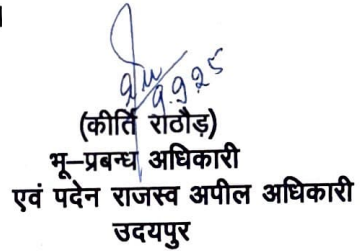 9.9.25
(कीर्ति राठौड़)
भू–प्रबन्ध अधिकारी
एवं पदेन राजस्व अपील अधिकारी
उदयपुर